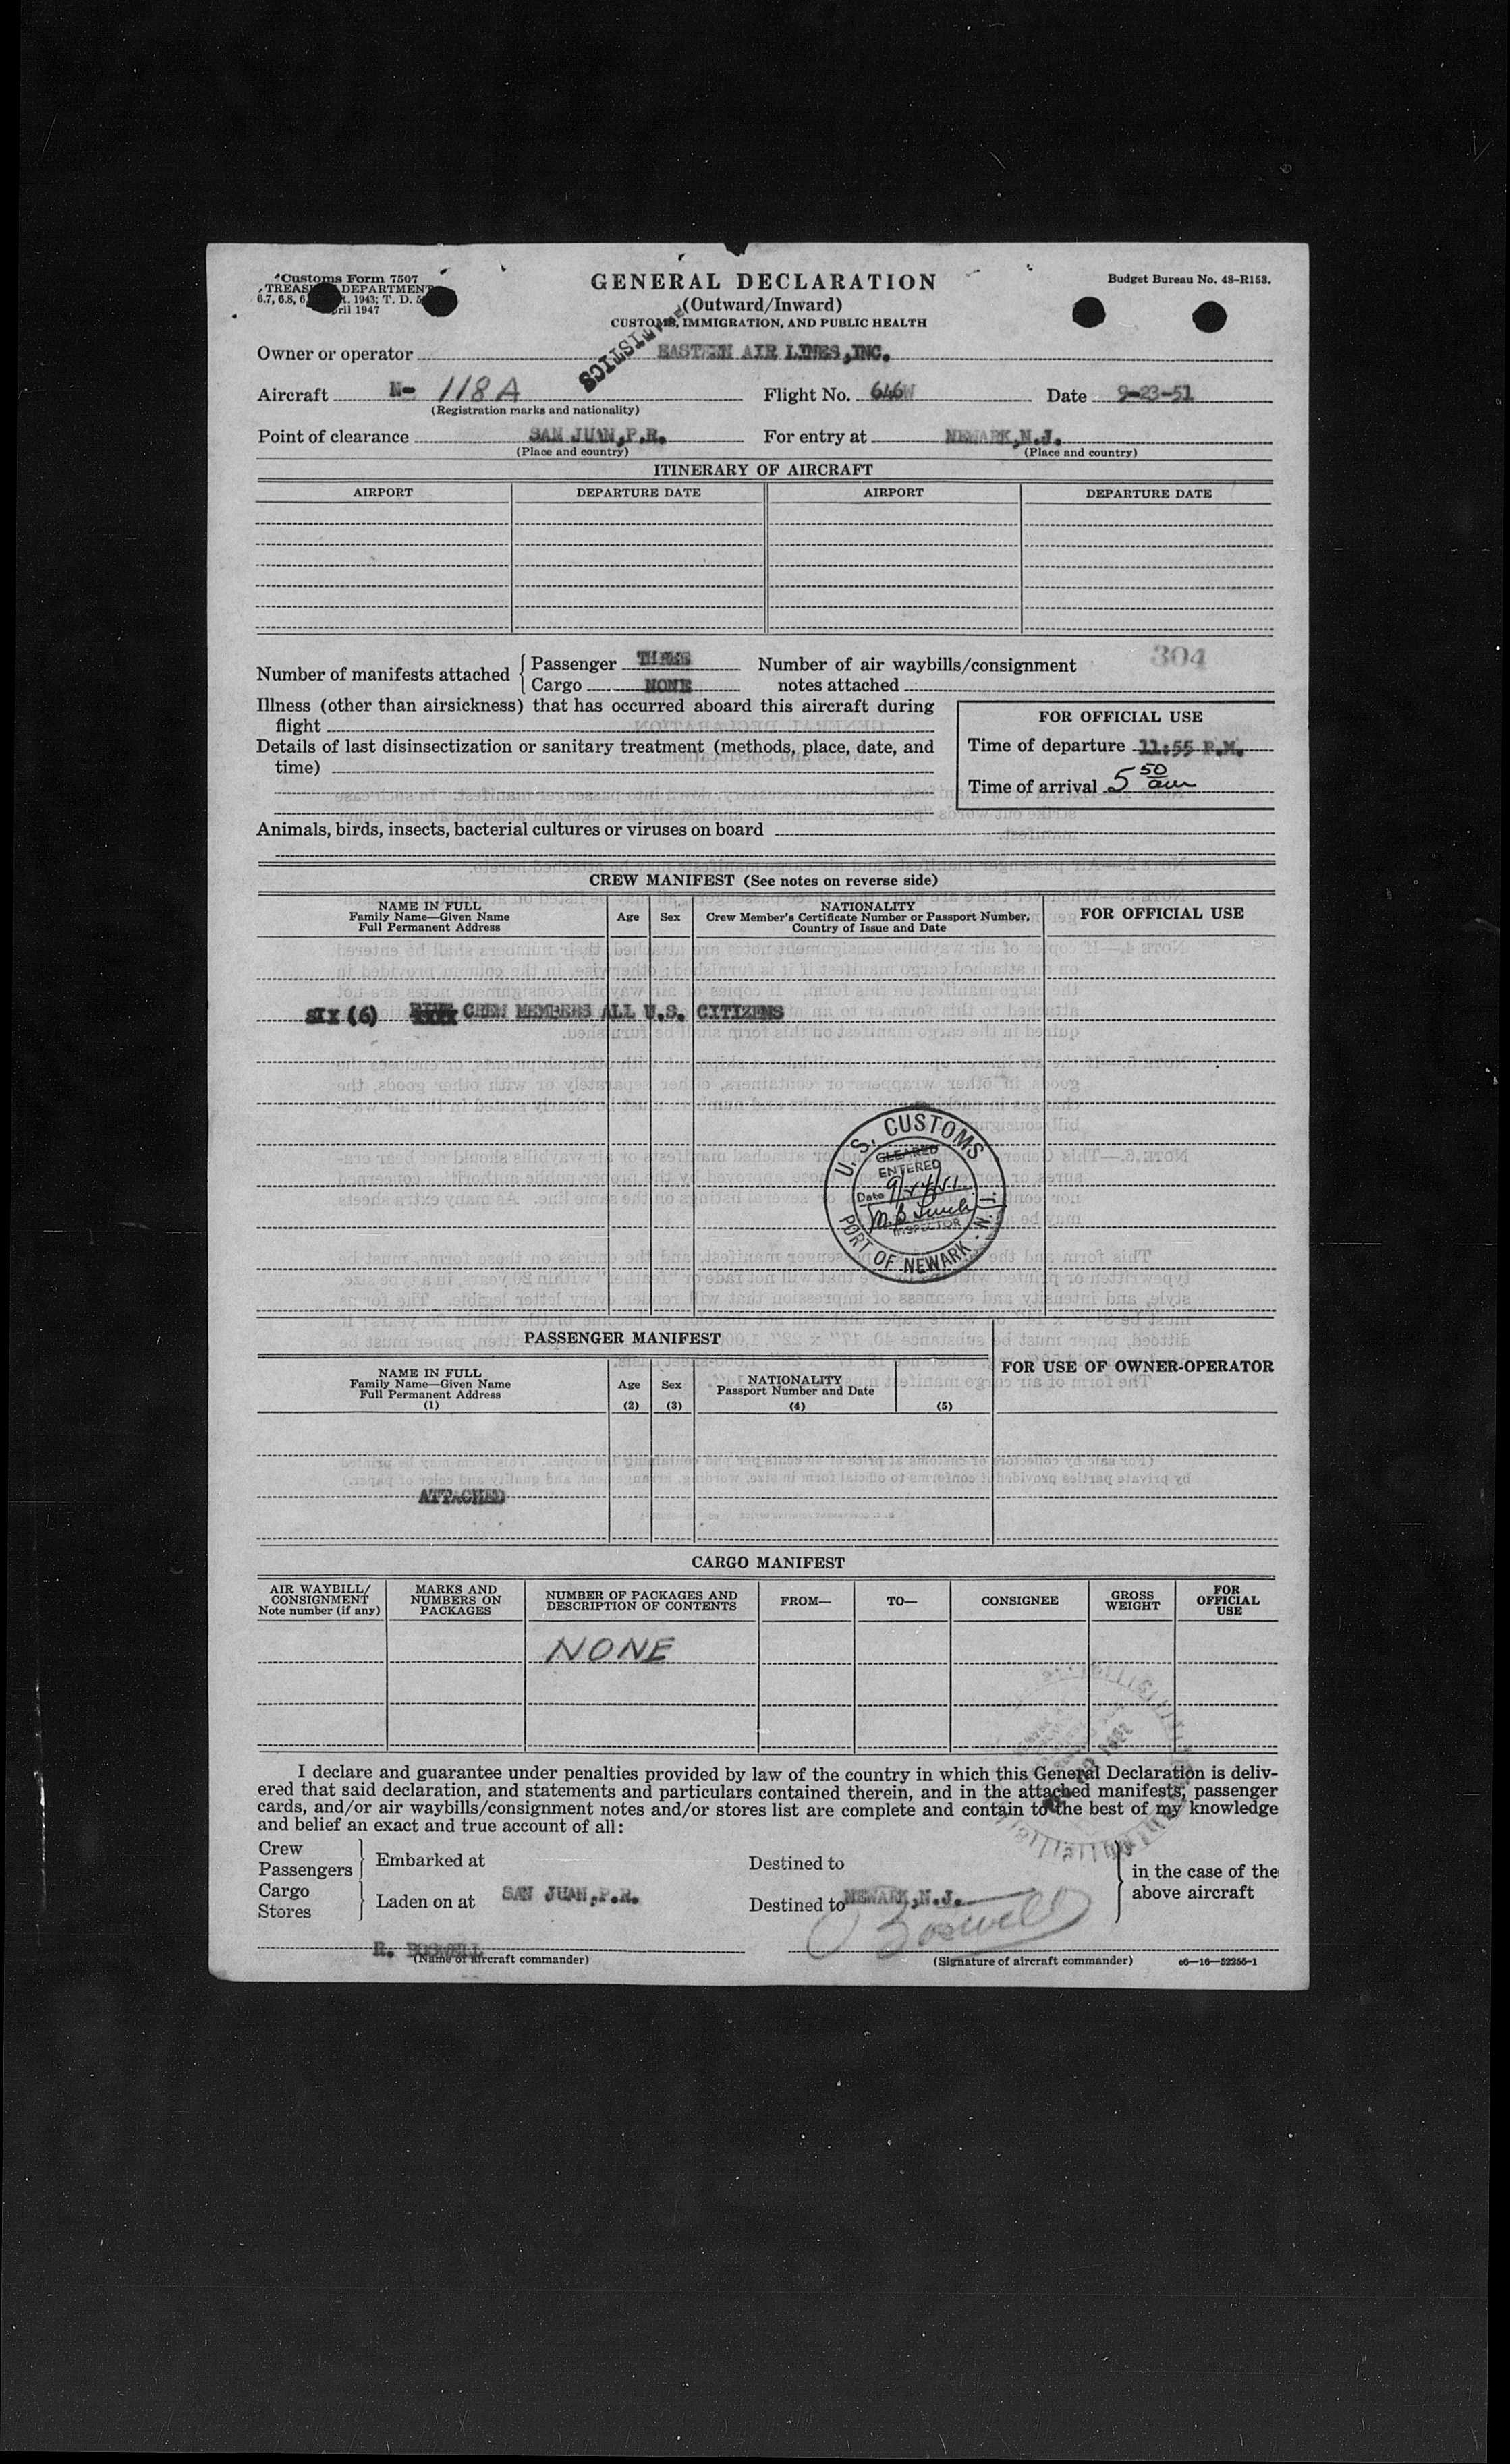 Customs Form 7507
TREAS DEPARTMENT
6.7, 6.8, 6. 1943; T. D.
ril 1947
GENERAL DECLARATION
(Outward/Inward)
CUSTOMS, IMMIGRATION, AND PUBLIC HEALTH
Budget Bureau No. 48-R153.
STATISTICS
Owner or operator EASTERN AIR LINES,INC.
Aircraft N- 118A Flight No. 646W Date 9-23-51
(Registration marks and nationality)
Point of clearance SAN JUAN,P.R. For entry at NEWARK,N.J.
(Place and country) (Place and country)
ITINERARY OF AIRCRAFT
AIRPORT DEPARTURE DATE AIRPORT DEPARTURE DATE
304
Number of manifests attached Passenger THREE Number of air waybills/consignment
Cargo NONE notes attached
Illness (other than airsickness) that has occurred aboard this aircraft during
flight
Details of last disinsectization or sanitary treatment (methods, place, date, and
time)
FOR OFFICIAL USE
Time of departure 11:55 P.M.
Time of arrival 5 50 am
Animals, birds, insects, bacterial cultures or viruses on board
CREW MANIFEST (See notes on reverse side)
NAME IN FULL
Family Name—Given Name
Full Permanent Address
Age Sex
NATIONALITY
Crew Member's Certificate Number or Passport Number,
Country of Issue and Date
FOR OFFICIAL USE
SIX (6) CREW MEMBERS ALL U.S. CITIZENS
U.S. CUSTOMS
CLEARED
ENTERED
Date 9/24/51
INSPECTOR
PORT OF NEWARK - N.J.
PASSENGER MANIFEST
NAME IN FULL
Family Name—Given Name
Full Permanent Address
(1)
Age
(2)
Sex
(3)
NATIONALITY
Passport Number and Date
(4) (5)
FOR USE OF OWNER-OPERATOR
ATTACHED
CARGO MANIFEST
AIR WAYBILL/
CONSIGNMENT
Note number (if any)
MARKS AND
NUMBERS ON
PACKAGES
NUMBER OF PACKAGES AND
DESCRIPTION OF CONTENTS
FROM—
TO—
CONSIGNEE
GROSS
WEIGHT
FOR
OFFICIAL
USE
NONE
I declare and guarantee under penalties provided by law of the country in which this General Declaration is deliv-
ered that said declaration, and statements and particulars contained therein, and in the attached manifests, passenger
cards, and/or air waybills/consignment notes and/or stores list are complete and contain to the best of my knowledge
and belief an exact and true account of all:
Crew
Passengers
Embarked at Destined to
Cargo
Stores
Laden on at SAN JUAN,P.R. Destined to NEWARK,N.J.
in the case of the
above aircraft
R. BOSWELL Boswell
(Name of aircraft commander) (Signature of aircraft commander) c6—16—52255-1